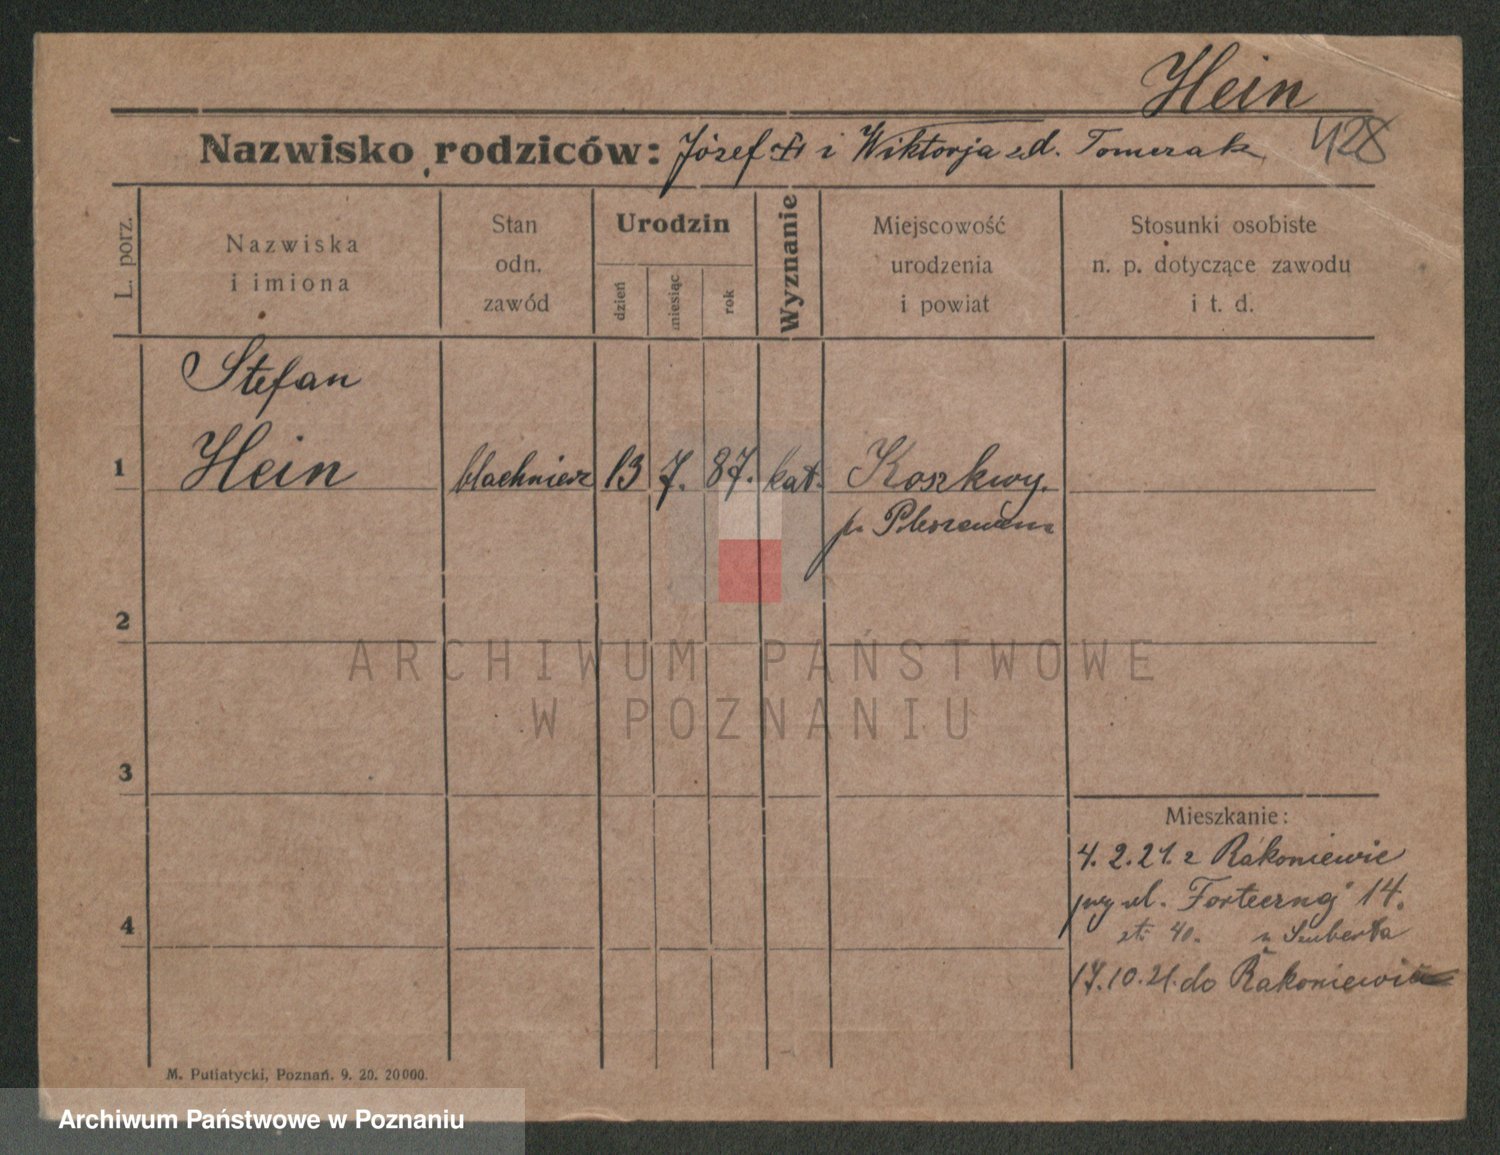 Hein
428
Nazwisko rodziców: Józef i Wiktorja zd. Tomczak
L. porz.
Nazwiska
i imiona
Stan
odn.
zawód
Urodzin
dzień
miesiąc
rok
Wyznanie
Miejscowość
urodzenia
i powiat
Stosunki osobiste
n. p. dotyczące zawodu
i t. d.
Stefan
1 Hein blachnierz 13 7. 87. kat. Koszkwy.
p.
2
ARCHIWUM PAŃSTWOWE
W POZNANIU
3
Mieszkanie:
4. 2. 21. z Rakoniewic
ul. 14.
4
40. Szuberta
17. 10. 21. do Rakoniewic
M. Putiatycki, Poznań. 9. 20. 20000.
Archiwum Państwowe w Poznaniu